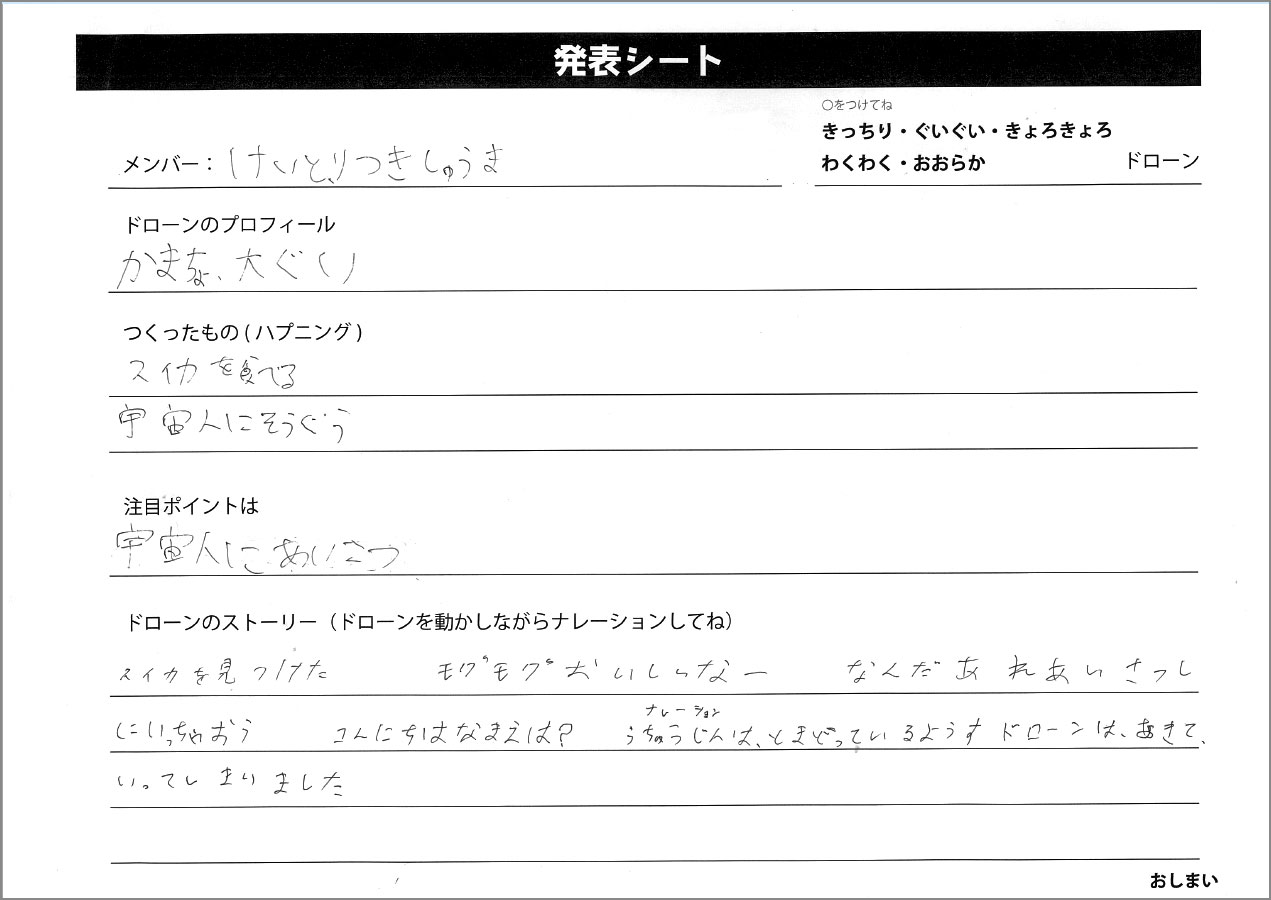 発表シート
〇をつけてね
きっちり・ぐいぐい・きょろきょろ
メンバー： けいと、りつきしゅうま
わくわく・おおらか ドローン
ドローンのプロフィール
かまちょ、大ぐい
つくったもの(ハプニング)
スイカを食べる
宇宙人にそうぐう
注目ポイントは
宇宙人にあいさつ
ドローンのストーリー（ドローンを動かしながらナレーションしてね）
スイカを見つけた モグモグおいしいなー なんだあれあいさつし
ナレーション
にいっちゃおう コんにちはなまえは? うちゅうじんは、とまどっているようす ドローンは、あきて、
いってしまいました
おしまい